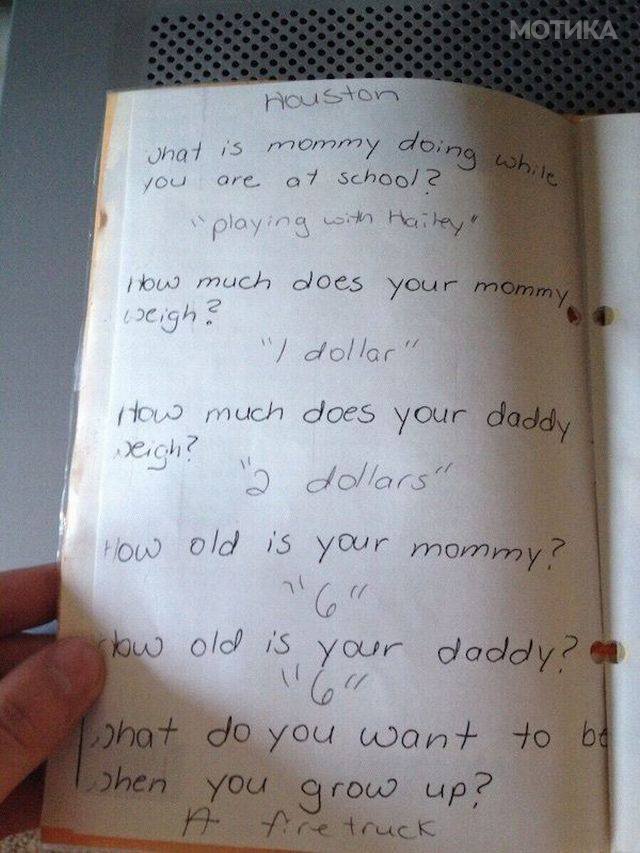 МОТИКА
Houston
what is mommy doing while
you are at school?
"playing with Hailey"
How much does your mommy
weigh?
"1 dollar"
How much does your daddy
weigh?
"2 dollars"
How old is your mommy?
"6"
How old is your daddy?
"6"
what do you want to be
when you grow up?
A firetruck